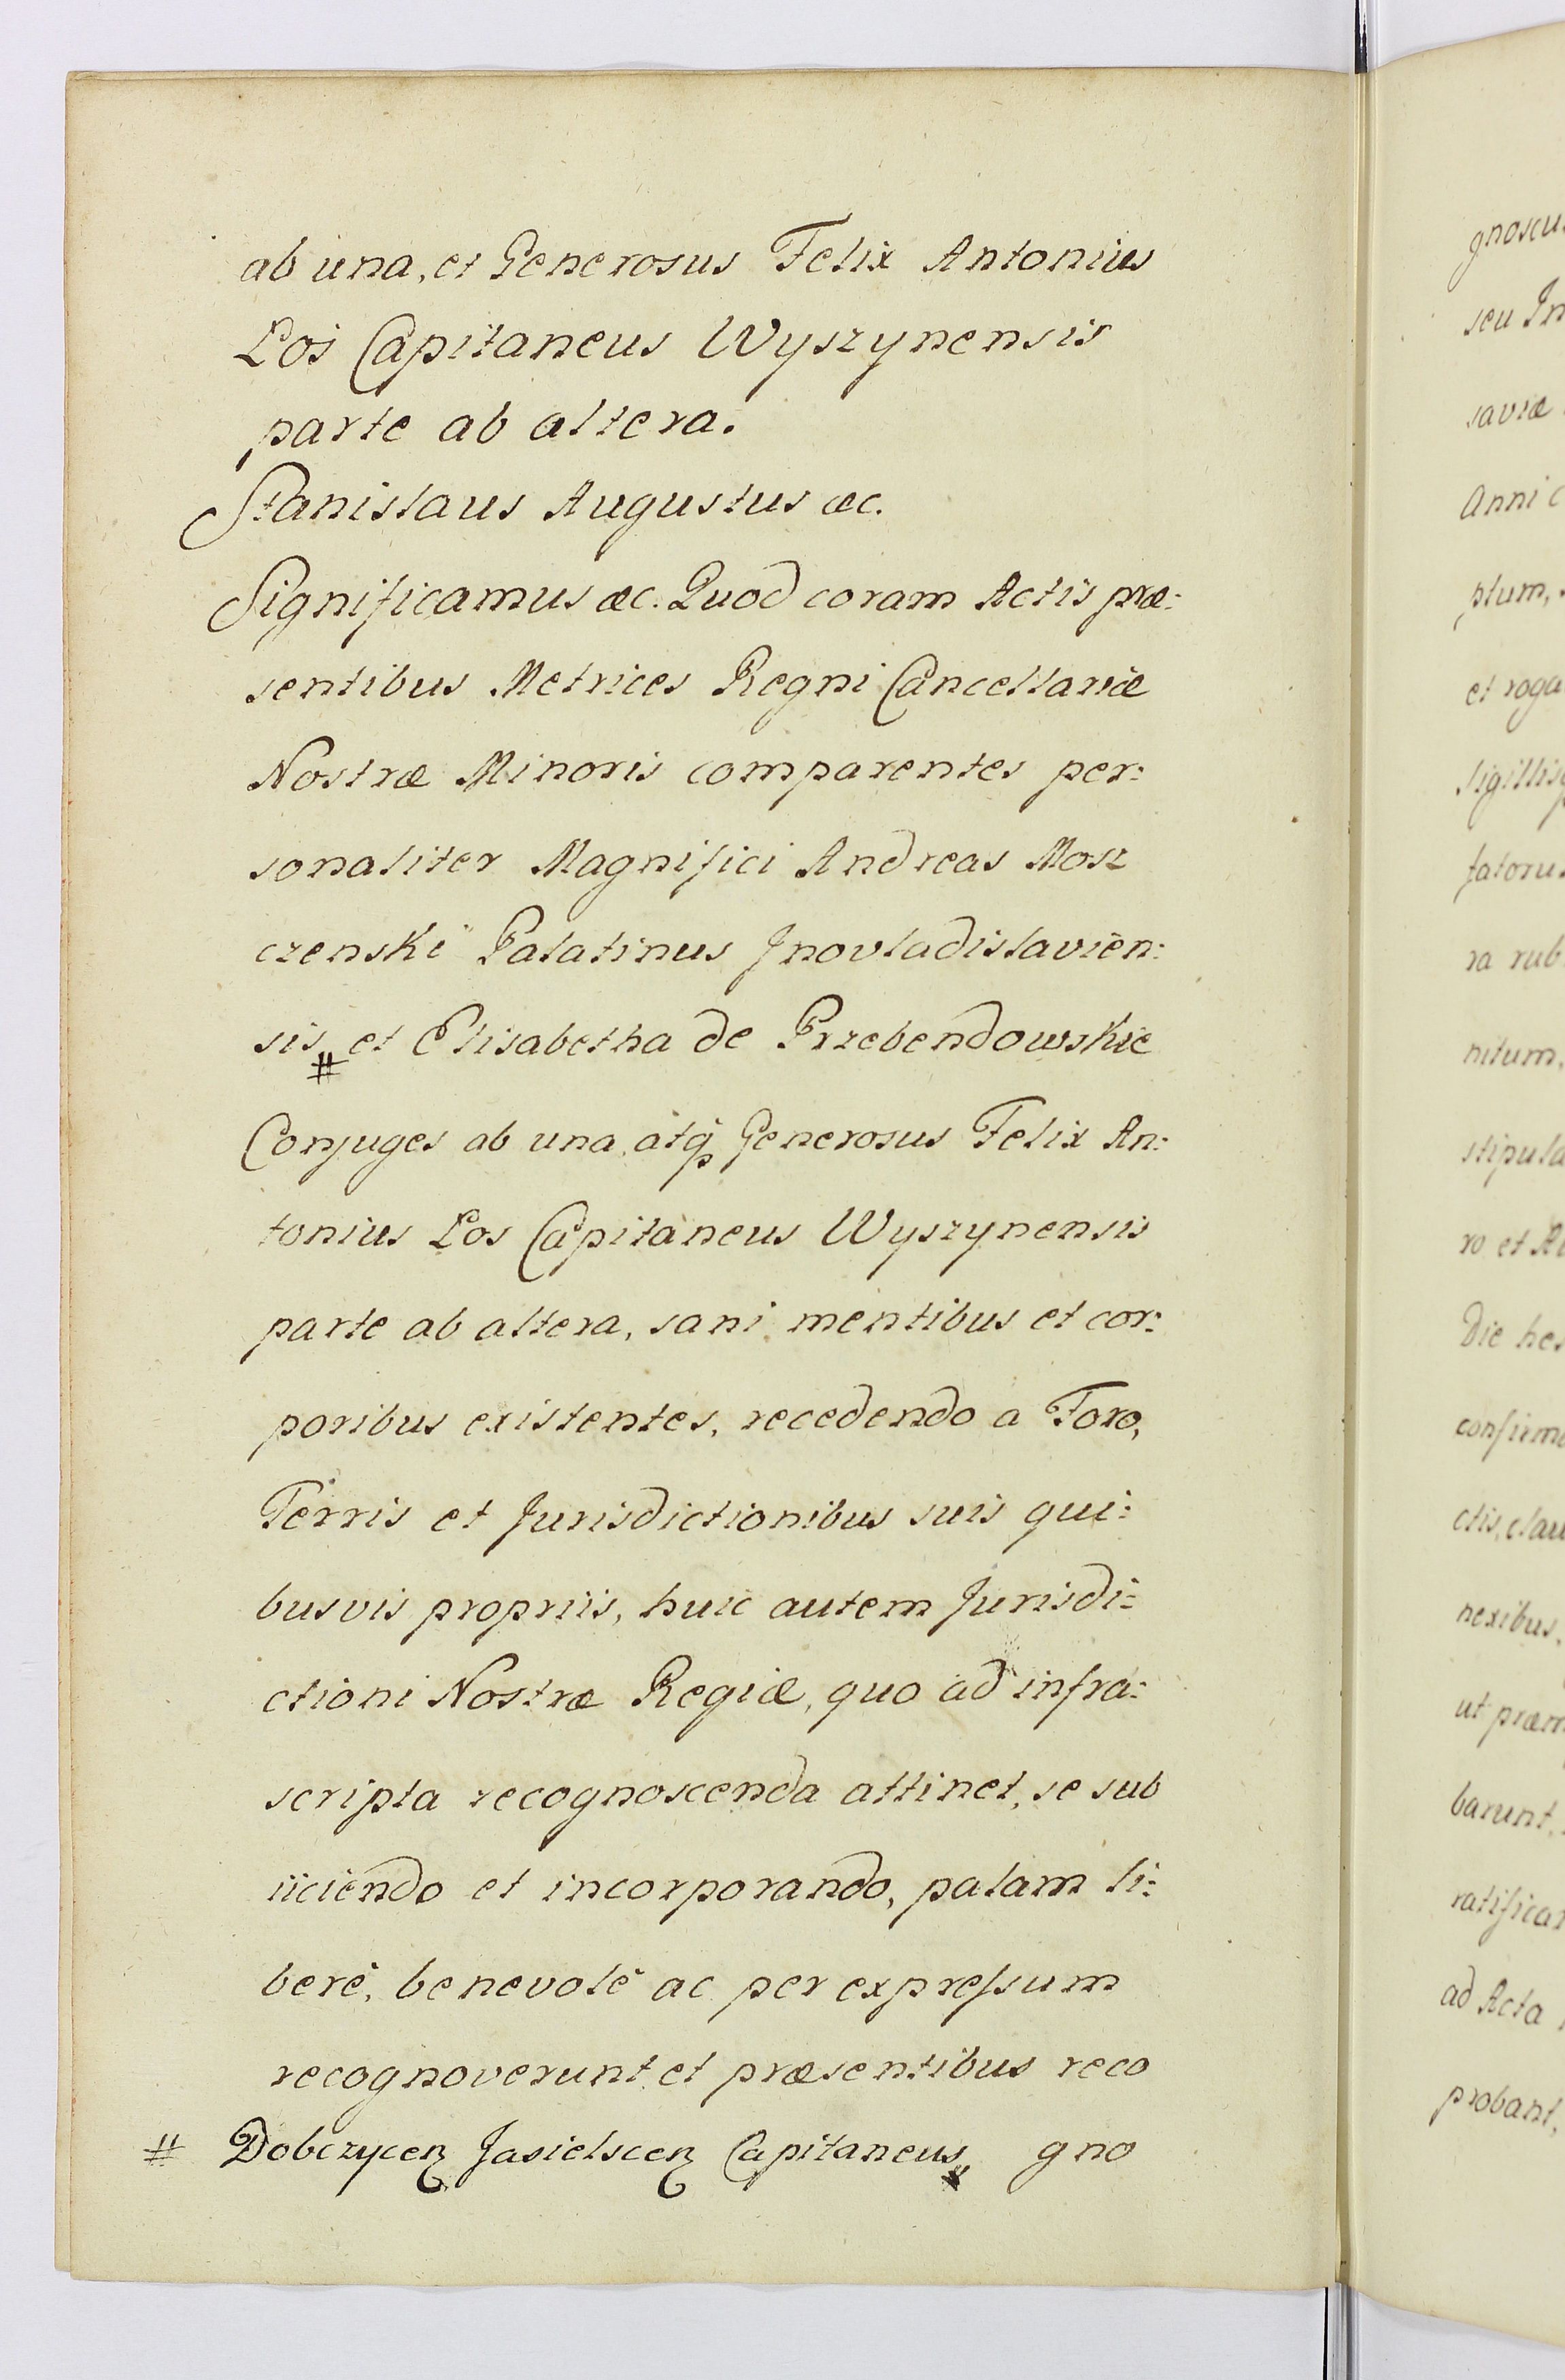 ab una, et Generosus Felix Antonius
Łoś Capitaneus Wyszynensis
parte ab altera.
Stanislaus Augustus &c.
Significamus &c. Quod coram Actis præ:
sentibus Metrices Regni Cancellariæ
Nostræ Minoris comparentes per:
sonaliter Magnifici Andreas Mosz
czenski Palatinus Inovladislavien:
sis # et Elisabetha de Przebendowskie
Conjuges ab una, atq Generosus Felix An:
tonius Łos Capitaneus Wyszynensis
parte ab altera, sani mentibus et cor:
poribus existentes, recedendo a Foro,
Terris et Jurisdictionibus suis qui:
busvis propriis, huic autem Jurisdi:
ctioni Nostræ Regiæ, quo ad infra:
scripta recognoscenda attinet, se sub
iiciendo et incorporando, palam li:
berè, benevolè ac per expressum
recognoverunt et præsentibus reco
# Dobczycen Jasielscen Capitaneus gno
gnoscu
seu In
saviæ
Anni
ptum,
et roga
sigillis
ra rub
nitum,
stipula
ro et
Die
confirm
ctis, clau
nexibus,
ut præm
barunt,
ratifica
ad Acta
probant,